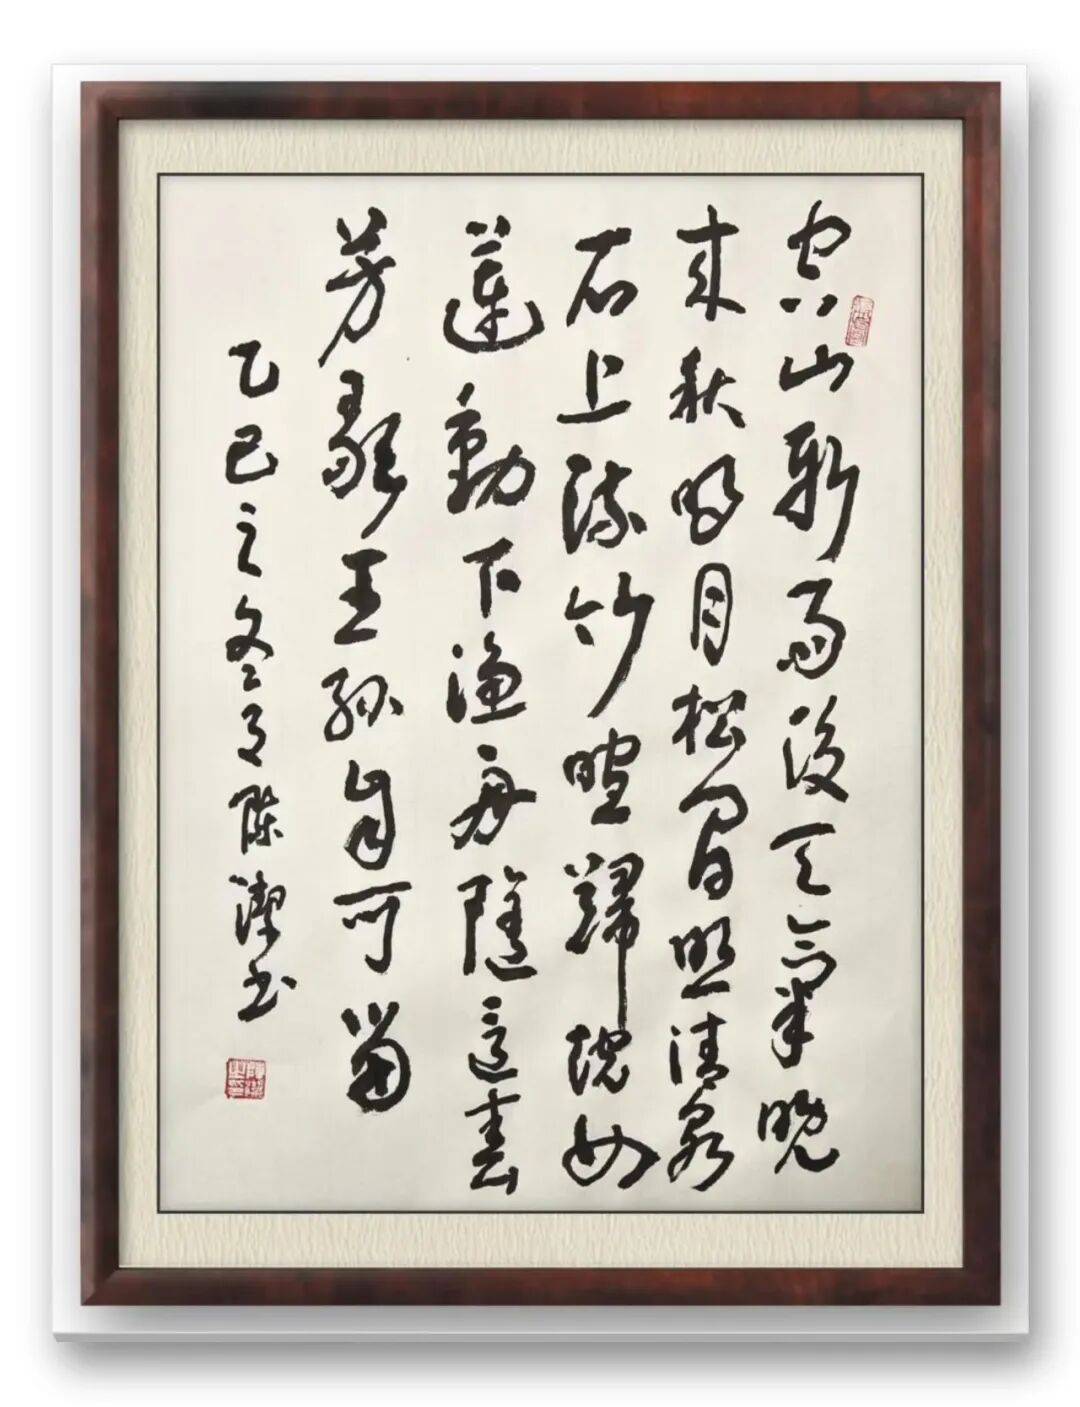 空山新雨後天氣晚
来秋明月松間照清泉
石上流竹喧歸浣女
蓮動下漁舟隨意春
芳歇王孫自可留
乙巳之冬月陳潔书